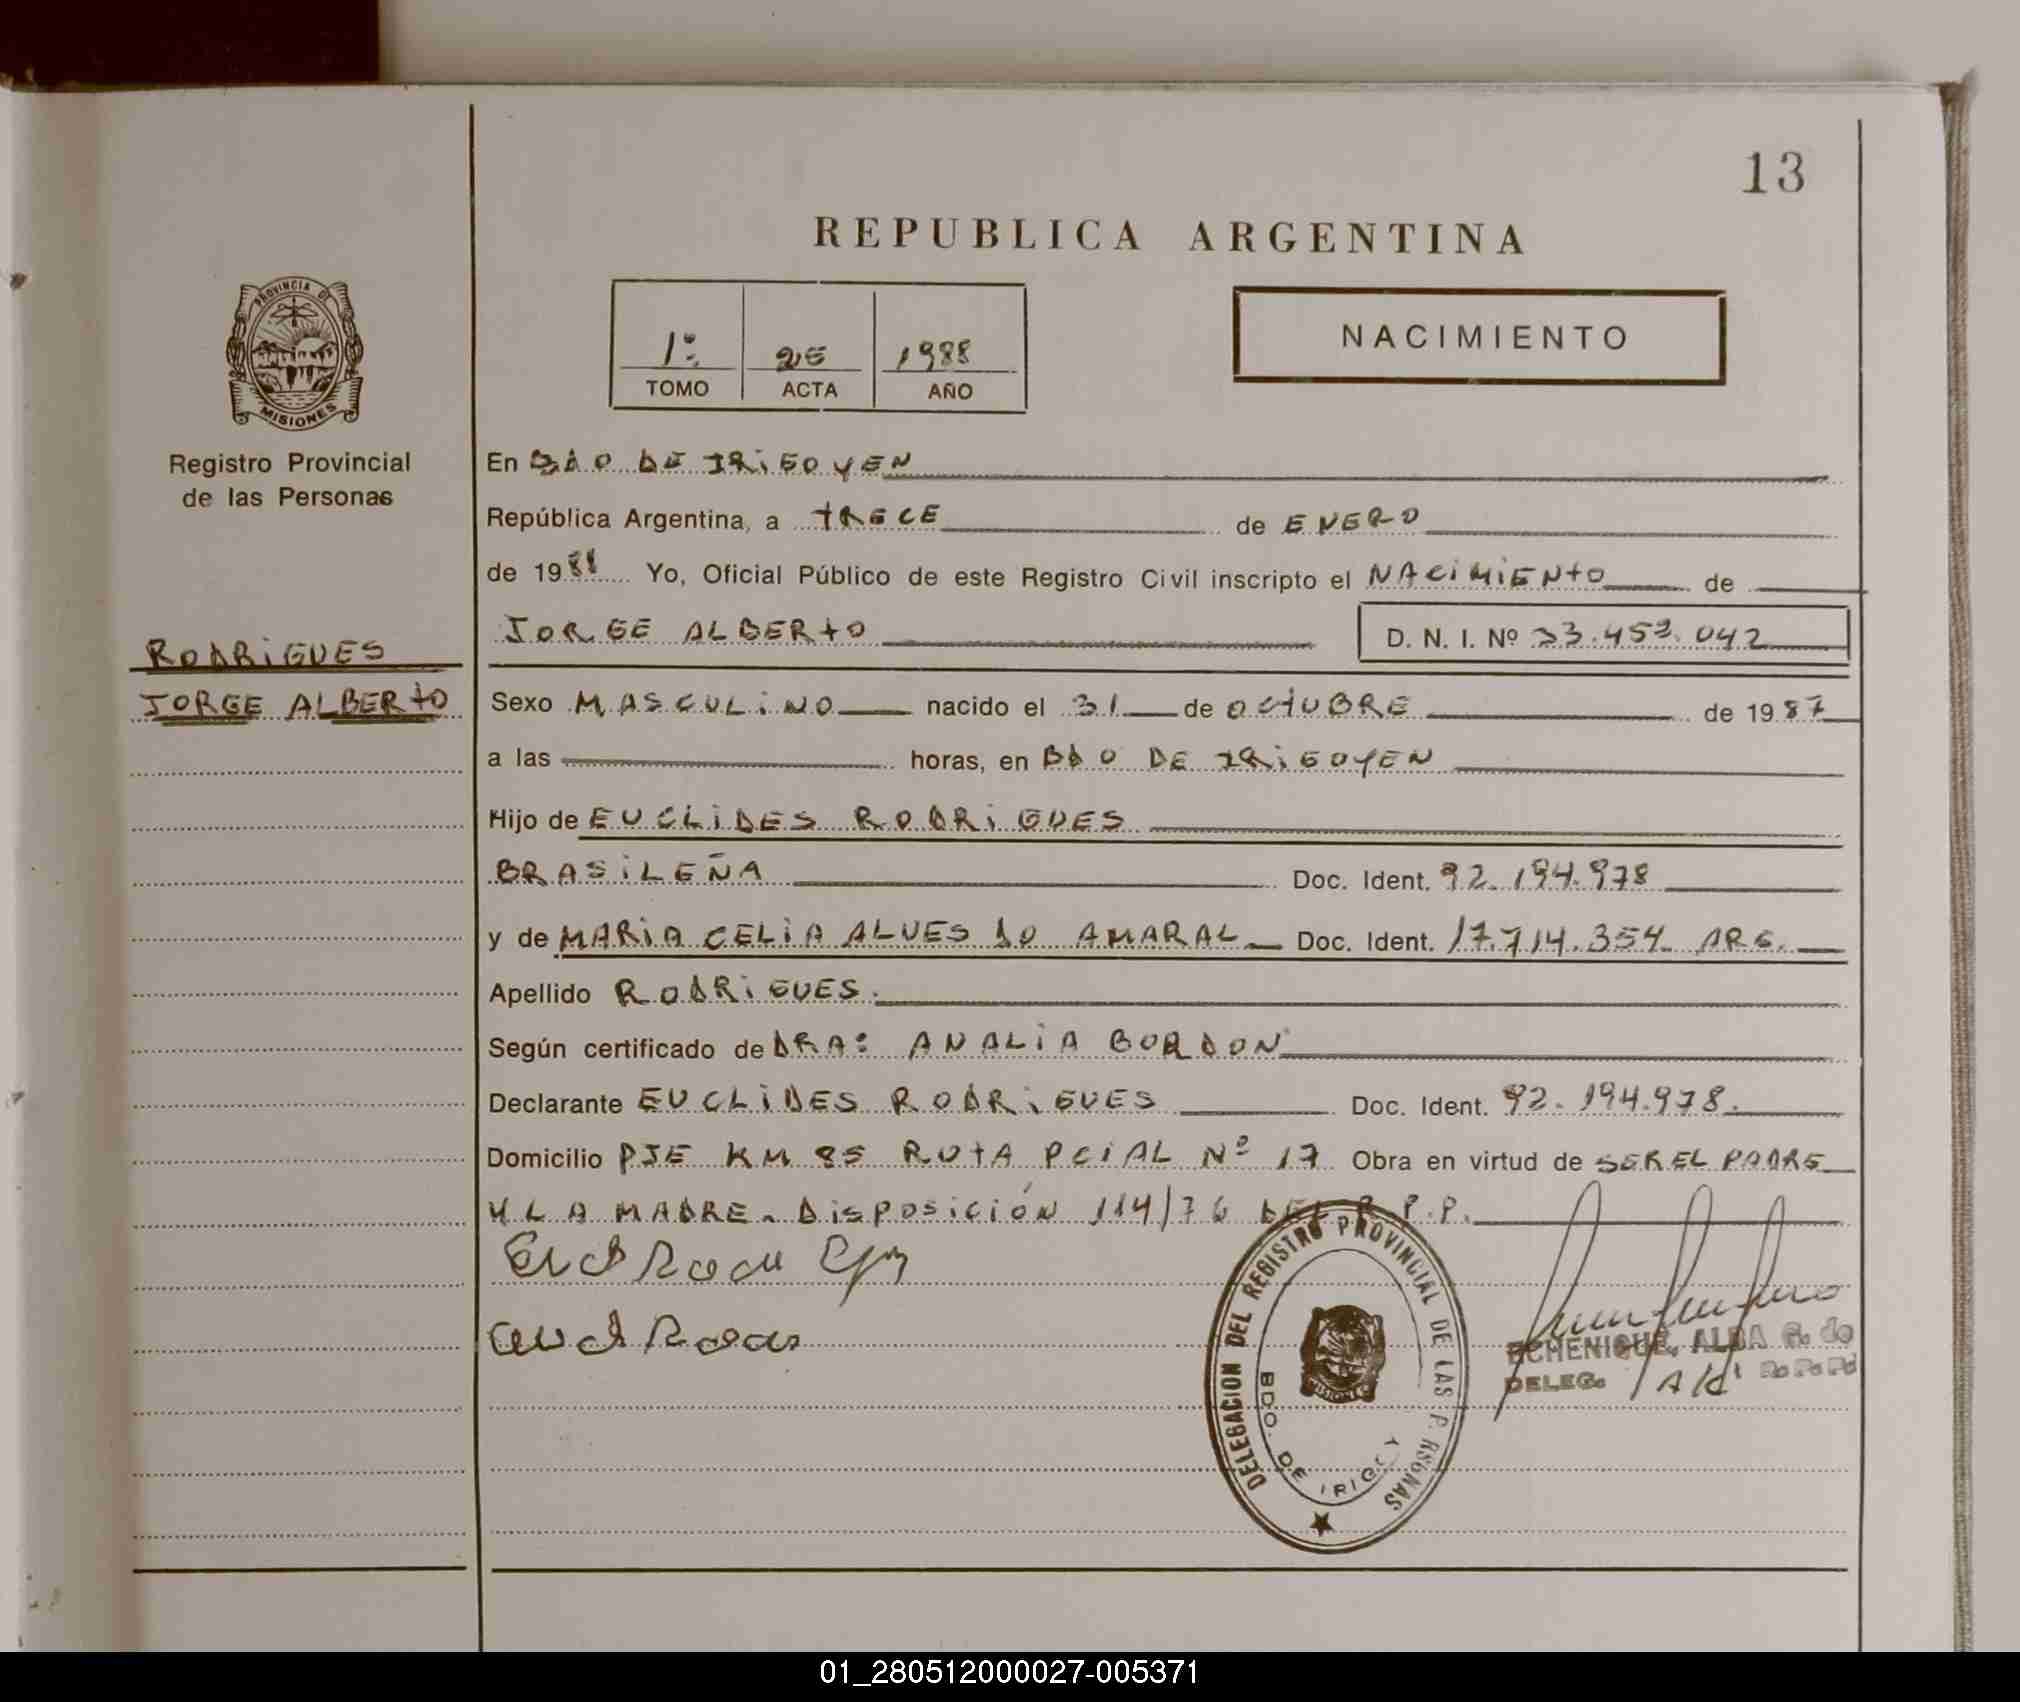 13
REPUBLICA ARGENTINA
PROVINCIA DE
MISIONES
Registro Provincial
de las Personas
1º 25 1988
TOMO ACTA AÑO
NACIMIENTO
RODRIGUES
JORGE ALBERTO
En BDO DE IRIGOYEN
República Argentina, a TRECE de ENERO
de 1988 Yo, Oficial Público de este Registro Civil inscripto el NACIMIENTO de
JORGE ALBERTO D. N. I. Nº 33.453.042
Sexo MASCULINO nacido el 31 de OCTUBRE de 1987
a las horas, en BDO DE IRIGOYEN
Hijo de EUCLIDES RODRIGUES
BRASILEÑA Doc. Ident. 92.194.978
y de MARIA CELIA ALVES DO AMARAL Doc. Ident. 17.714.354 ARG.
Apellido RODRIGUES.
Según certificado de DRA: ANALIA BORDON
Declarante EUCLIDES RODRIGUES Doc. Ident. 92.194.978.
Domicilio PJE KM 85 RUTA PCIAL Nº 17 Obra en virtud de SER EL PADRE
Y LA MADRE. DISPOSICIÓN 114/76 DEL R.P.P.
DELEGACION DEL REGISTRO PROVINCIAL DE LAS P RSONAS
BDO. DE IRIGOY
MISIONES
ECHENIQUE, ALBA G. de
DELEG. R.P.P.
01_280512000027-005371